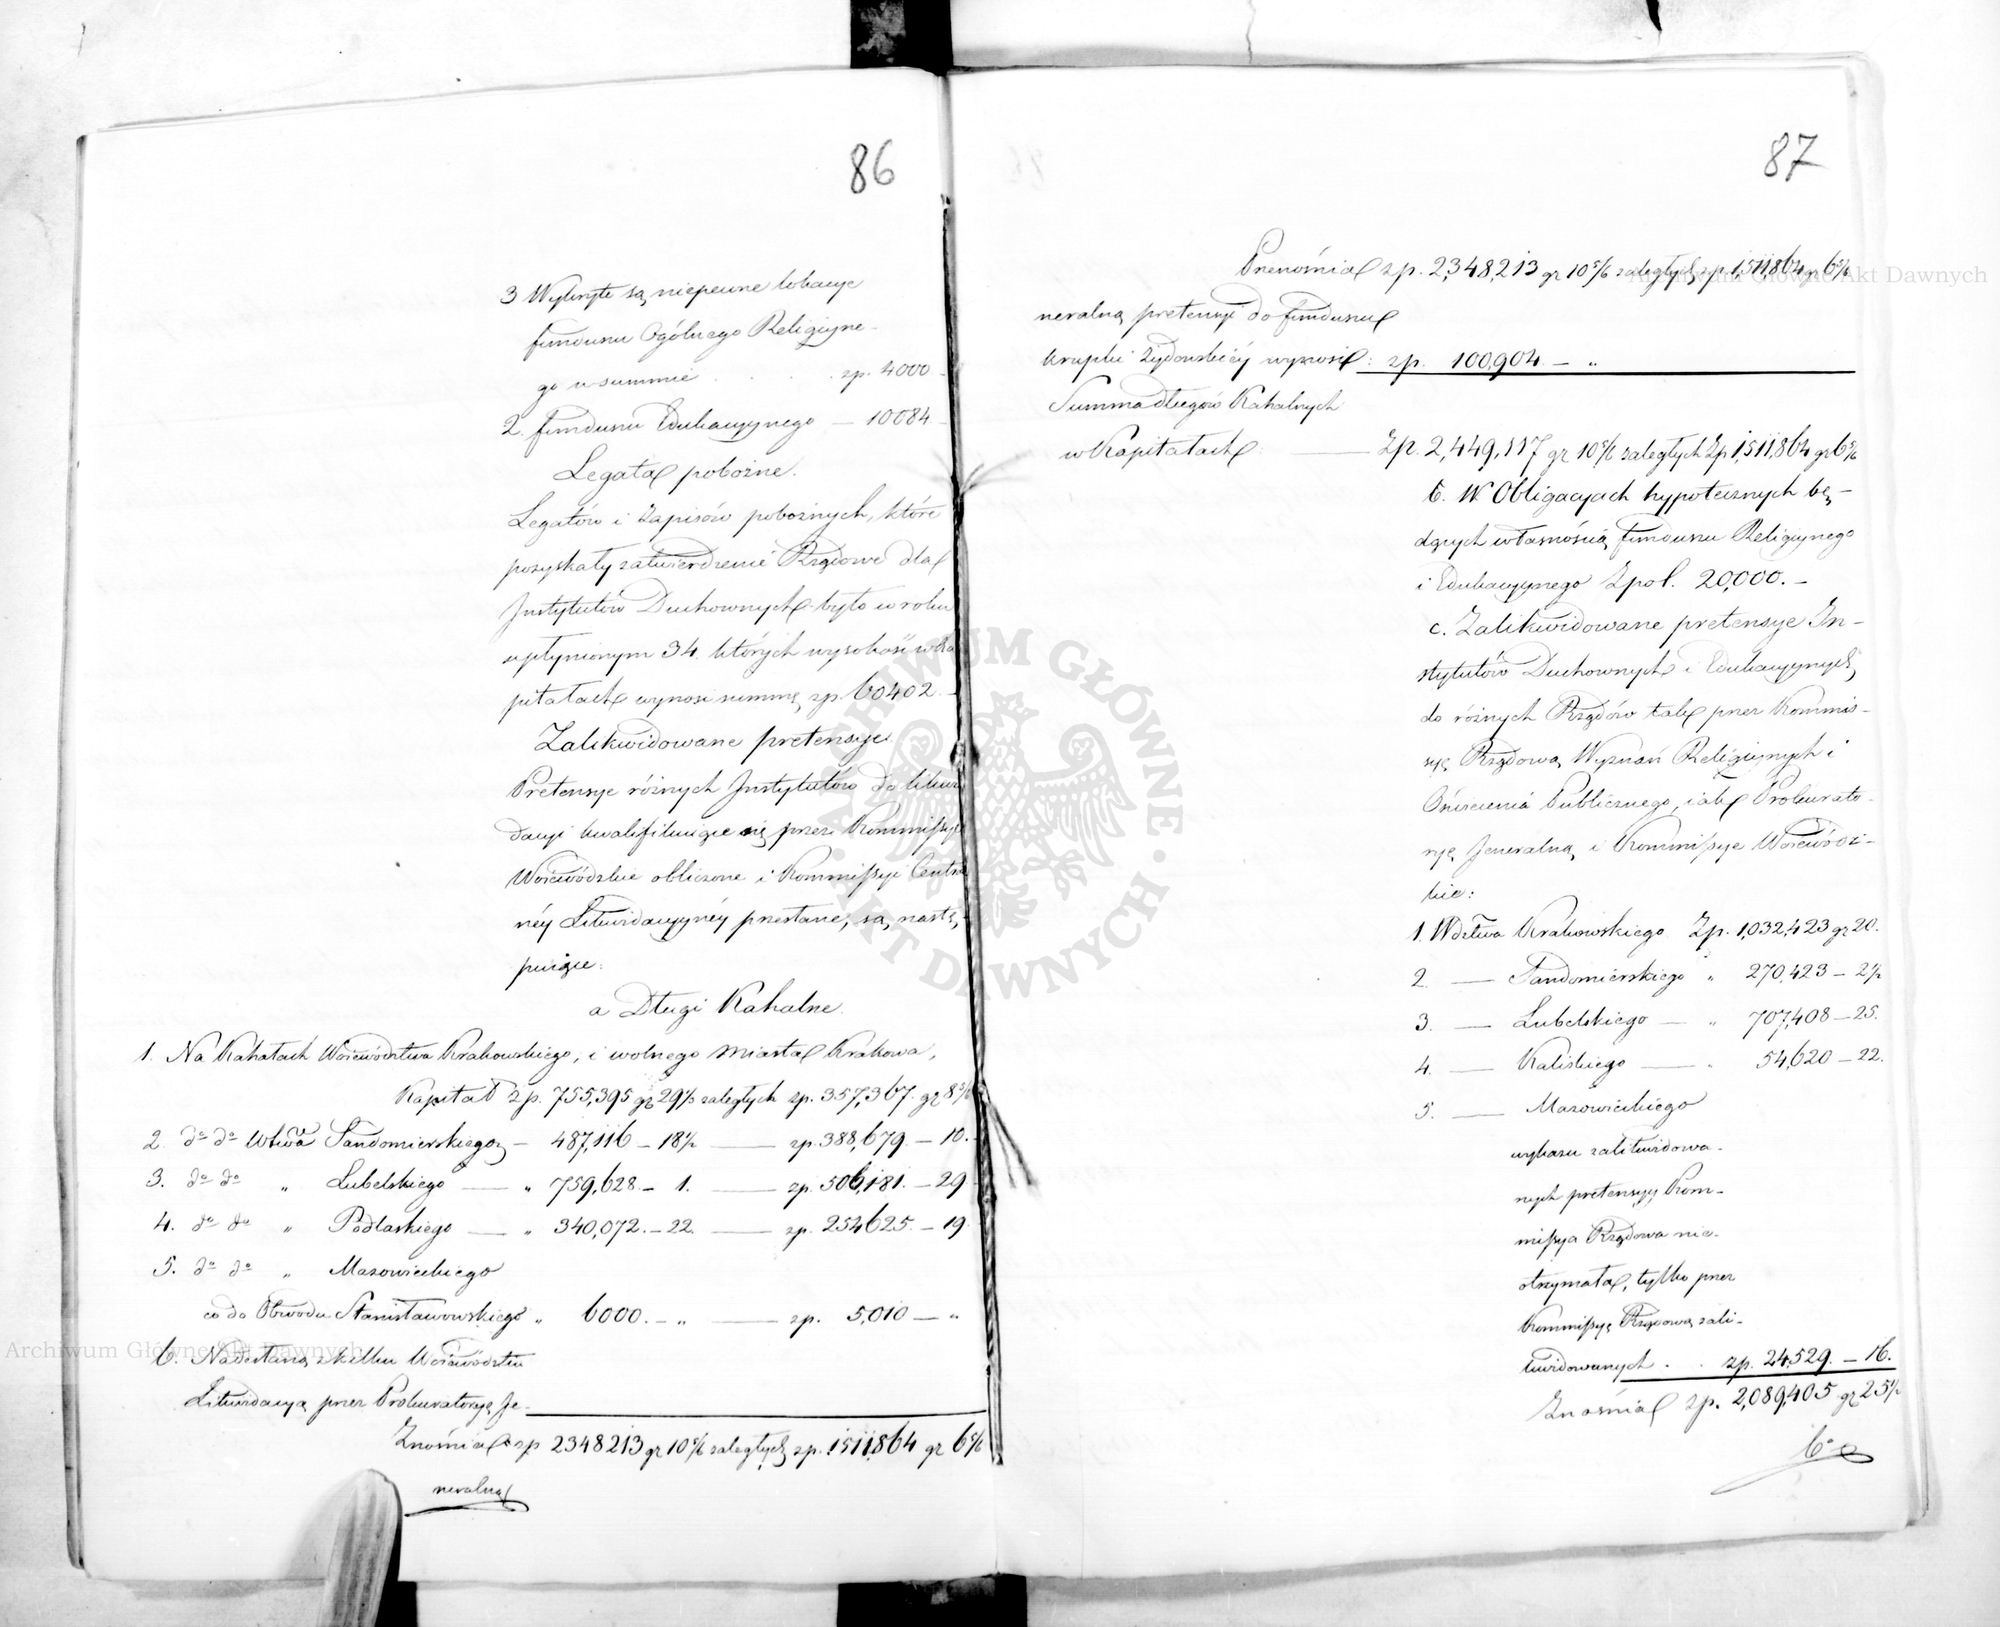 86
3 Wykryte są niepewne lokacye
funduszu Ogólnego Religijne-
go w summie . . . zp. 4000 -
2. funduszu Edukacyjnego — 10084 -
Legata pobożne.
Legatów i Zapisów pobożnych, które
pozyskały zatwierdzenie Rządowe dla
Instytutów Duchownych było w roku
upłynionym 34. których wysokość w ka
pitałach wynosi summę zp. 60402. -
Zalikwidowane pretensye.
Pretensye różnych Instytutów do likwi
dacyi kwalifikuiące się przez Kommissye
Woiewódzkie obliczone i Kommissyi Centra
néy Likwidacyjnéy przesłane, są, nastę,-
puiące:
a Długi Kahalne.
1. Na Kahałach Woiewództwa Krakowskiego, i wolnego Miasta Krakowa,
Kapitał zp. 755,395 gr 29½ zaległych zp. 357,367. gr 8 5/6
2. do do Wtwa Sandomierskiego — 487,116 — 18½ — zp. 388,679. — 10.
3. do do " Lubelskiego — " 759,628 — 1. — zp. 506,181. — 29
4. do do " Podlaskiego — " 340,072. — 22. — zp. 254625. — 19.
5. do do " Mazowieckiego
co do Obwodu Stanisławowskiego " 6000. — " — zp. 5,010 — "
6. Nadesłana z kilku Woiewództw
Likwidacya przez Prokuratoryą Je-
Znośnia zp 2348213 gr 10 5/6 zaległych zp. 1511,864 gr 6 5/6
neralną
87
Przenośnia zp. 2,348,213 gr 10 5/6 zaległych zp. 1,511,864 gr 6 5/6
neralną pretensyi do funduszu
krupki żydowskiéy wynosi: zp. 100,904. — "
Summa długów Kahalnych
w Kapitałach: — Zp. 2,449,117 gr 10 5/6 zaległych Zp 1,511,864 gr 6 5/6
b. W Obligacyach hypotecznych bę-
dących własnością funduszu Religijnego
i Edukacyjnego Zpol. 20,000. —
c. Zalikwidowane pretensye In-
stytutów Duchownych i Edukacyjnych
do różnych Rządów tak przez Kommis-
syę Rządową Wyznań Religijnych i
Oświecenia Publicznego, iak Prokurato-
ryę Jeneralną i Kommissye Woiewódz-
kie:
1. Wdztwa Krakowskiego Zp. 1,032,423 gr 20.
2. — Sandomierskiego " 270,423 — 2½
3. — Lubelskiego — " 707,408 — 25.
4. — Kaliskiego — " 54,620 — 22.
5. — Mazowieckiego
wykazu zalikwidowa-
nych pretensyy Kom-
missya Rządowa nie-
otrzymała, tylko przez
Kommissyę Rządową zali-
kwidowanych . . zp. 24,529. — 16.
Znośnia zp. 2,089,405 gr 25½
Archiwum Główne Akt Dawnych
Archiwum Główne Akt Dawnych
ARCHIWUM GŁÓWNE · AKT DAWNYCH ·